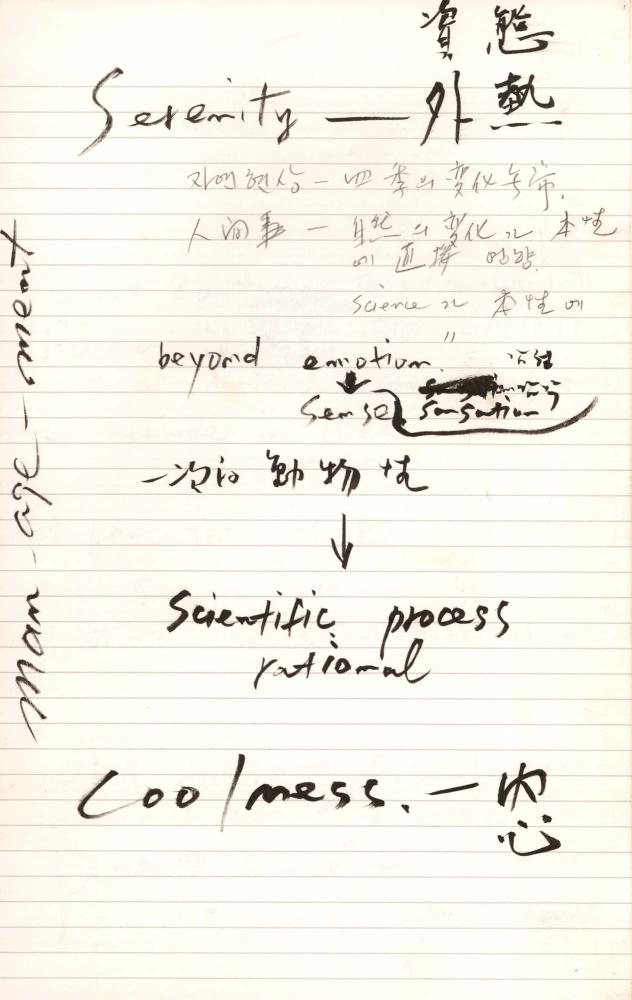 資態
Serenity — 外熱
자연현상 - 四季의 変化
人间事 - 自然의 変化가 本性
에 直接 영향.
science가 本性에
beyond emotion."
Sense sensation
一次的 動物性
↓
Scientific process
rational
Coolness. — 内
心
man-age-ment